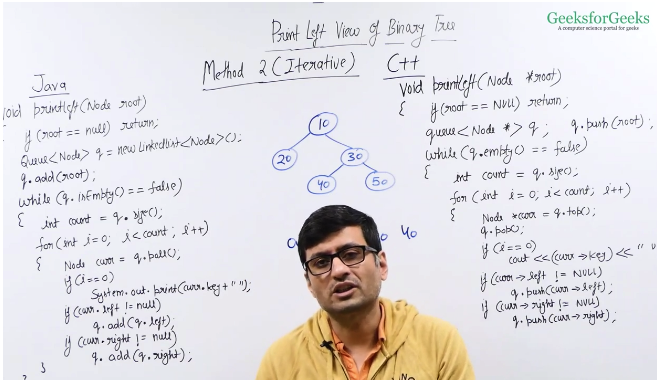 GeeksforGeeks
A computer science portal for geeks
Print Left View of Binary Tree
Method 2 (Iterative)
Java
void printLeft(Node root)
{
if (root == null) return;
Queue<Node> q = new LinkedList<Node>();
q.add(root);
while (q.isEmpty() == false)
{ int count = q.size();
for(int i=0; i<count; i++)
{ Node curr = q.poll();
if (i==0)
System.out.print(curr.key+" ");
if (curr.left != null)
q.add(q.left);
if (curr.right != null)
q.add(q.right);
}
C++
void printLeft(Node *root)
{ if (root == NULL) return;
queue<Node *> q; q.push(root);
while (q.empty() == false)
{ int count = q.size();
for (int i=0; i<count; i++)
{ Node *curr = q.top();
q.pop();
if (i==0)
cout <<(curr→key) << " "
if (curr→left != NULL)
q.push(curr→left);
if (curr→right != NULL)
q.push(curr→right);
10
20 30
40 50
40